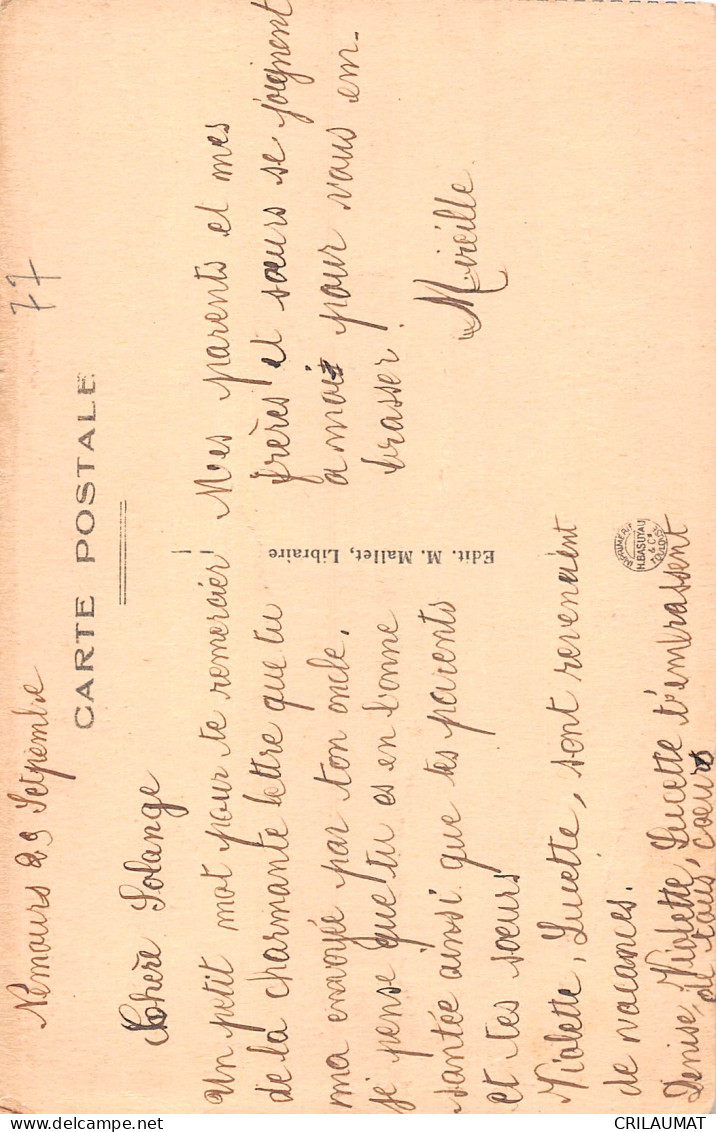 77
Nemours 29 Setpembre
CARTE POSTALE
Chère Solange
Un petit mot pour te remercier
de la charmante lettre que tu
ma envoyée par ton oncle.
je pense que tu es en bonne
santée ainsi que tes parents
et tes sœurs
Violette, Lucette, sont revenaient
de vacances.
Denise, Violette, Lucette t'embrassent
de tous cœurs
Mes parents et mes
frères et sœurs se joignent
a moi pour vous em
brasser.
Mireille
Edit. M. Mallet, Libraire
IMPRIMERIE
H. BASUYAU
& Cie
TOULOUSE
CRILAUMAT